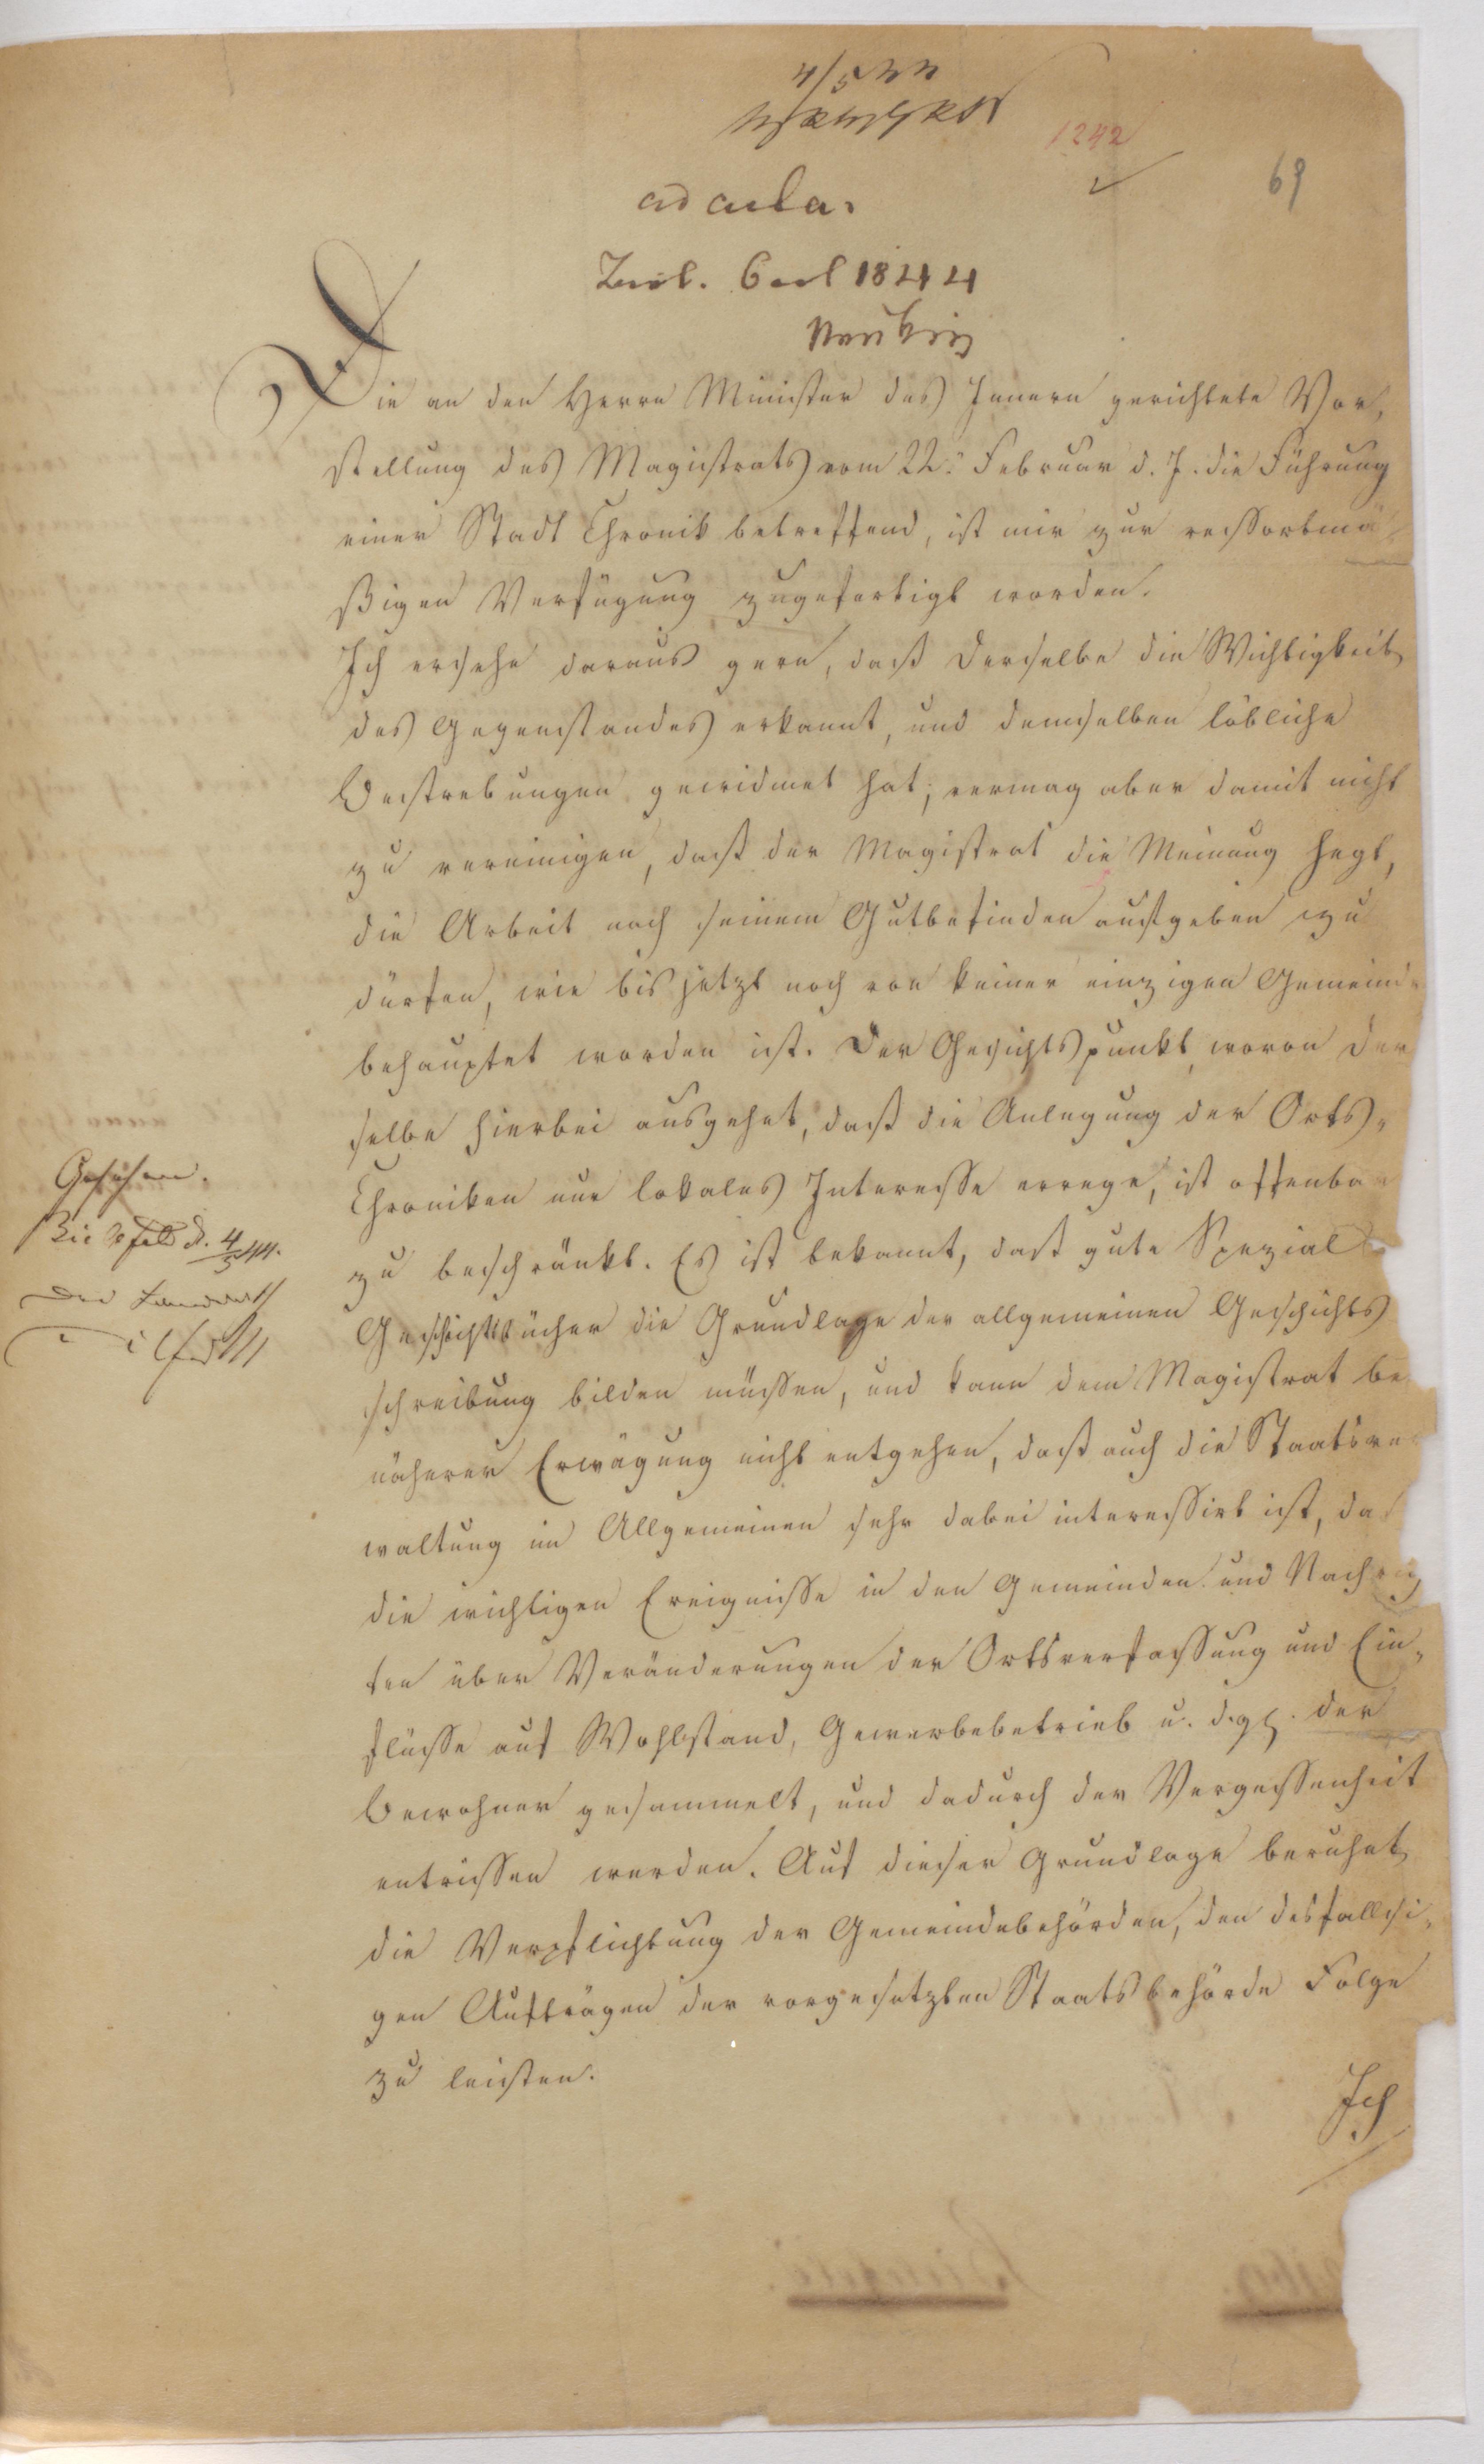 4/5 44
1242
69
ad acta.
1844
Die an den Herrn Minister des Innern gerichtete Vor-
stellung des Magistrats vom 22. Februar d. J. die Führung
einer Stadt Chronik betreffend, ist mir zur ressortmä
ßigen Verfügung zugefertigt worden.
Ich ersehe daraus gern, daß derselbe die Wichtigkeit
des Gegenstandes erkannt, und demselben löbliche
Bestrebungen gewidmet hat; vermag aber damit nicht
zu vereinigen, daß der Magistrat die Meinung hegt,
die Arbeit nach seinem Gutbefinden aufgeben zu
dürfen, wie bis jetzt noch von keiner einzigen Gemeinde
behauptet worden ist. Der Gesichtspunkt, wovon der
selbe hierbei ausgehet, daß die Anlegung der Orts-
Chroniken nur lokales Interesse errege, ist offenbar
zu beschränkt. Es ist bekannt, daß gute Spezial
Geschichtsbücher die Grundlage der allgemeinen Geschichts
schreibung bilden müssen, und kann dem Magistrat be
näherer Erwägung nicht entgehen, daß auch die Staatsver
waltung im Allgemeinen sehr dabei interessirt ist, daß
die wichtigen Ereignisse in den Gemeinden und Nachrich
ten über Veränderungen der Ortsverfassung und Ein-
flüsse auf Wohlstand, Gewerbebetrieb u. dgl. der
Bewohner gesammelt, und dadurch der Vergessenheit
entrissen werden. Auf dieser Grundlage beruhet
die Verpflichtung der Gemeindebehörden, den desfallsi-
gen Aufträgen der vorgesetzten Staatsbehörde Folge
zu leisten.
Ich
Gesehen.
Bielefeld d. 4/5 44.
Der Landrath